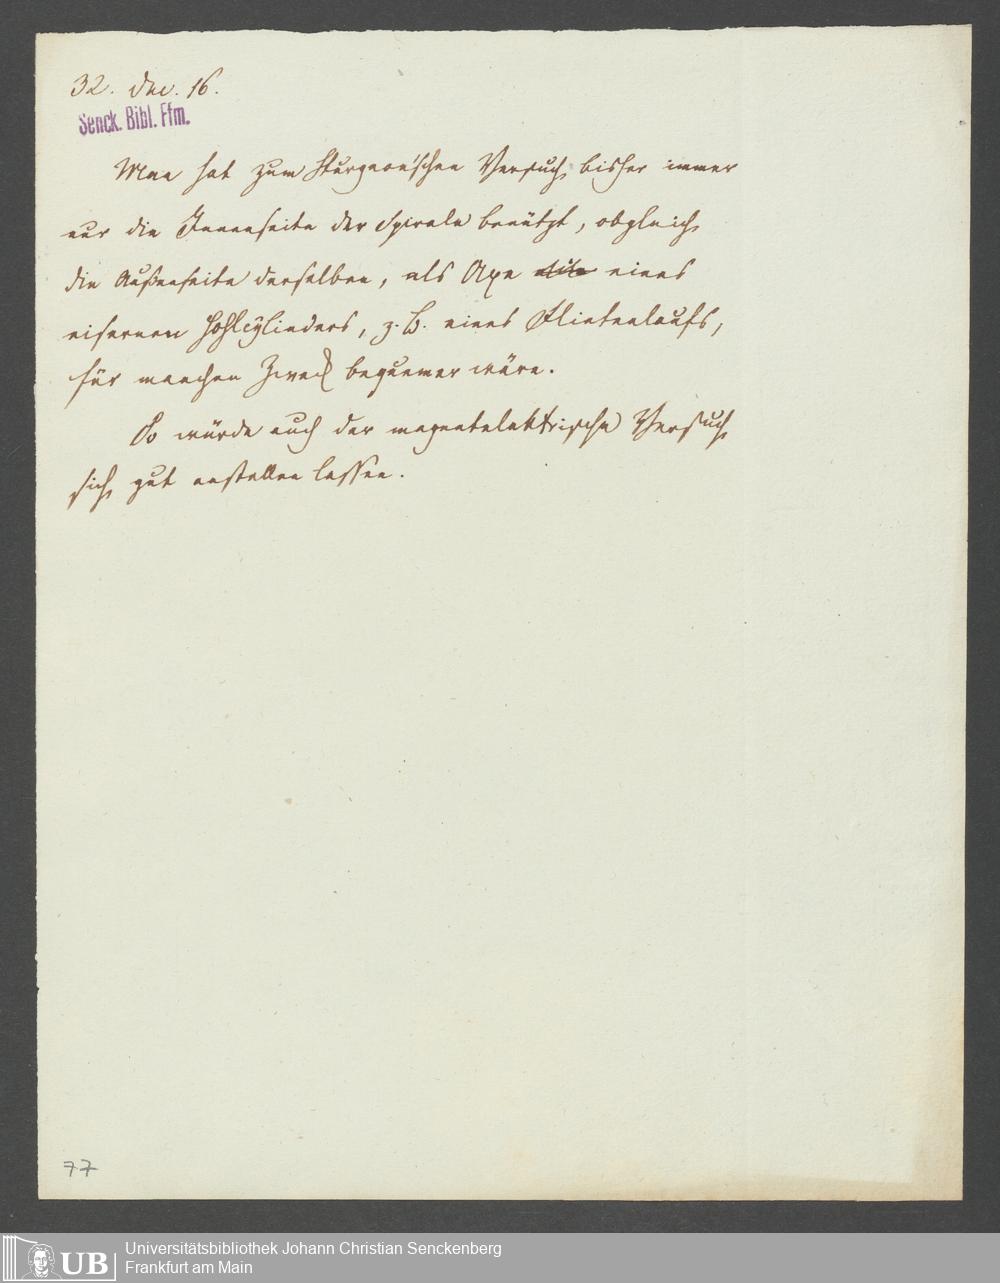 32. Dec. 16.
Senck. Bibl. Ffm.
Man hat zum Sturgeon'schen Versuch bisher immer
nur die Innenseite der Spirale benützt, obgleich
die Außenseite derselben, als Axe eines
eisernen Hohlcylinders, z. B. eines Flintenlaufs,
für manchen Zweck bequemer wäre.
So würde auch der magnetelektrische Versuch
sich gut anstellen lassen.
77
UB
Universitätsbibliothek Johann Christian Senckenberg
Frankfurt am Main